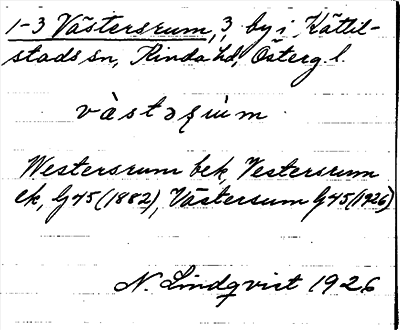 1-3 Västersrum, 3, by i Kättil-
stads sn, Kinda hd, Österg. l.
våstəʂùm.
Westersrum bek, Vestersrum
ek, G45 (1882), Västersum G45 (1926)
N. Lindqvist 1926